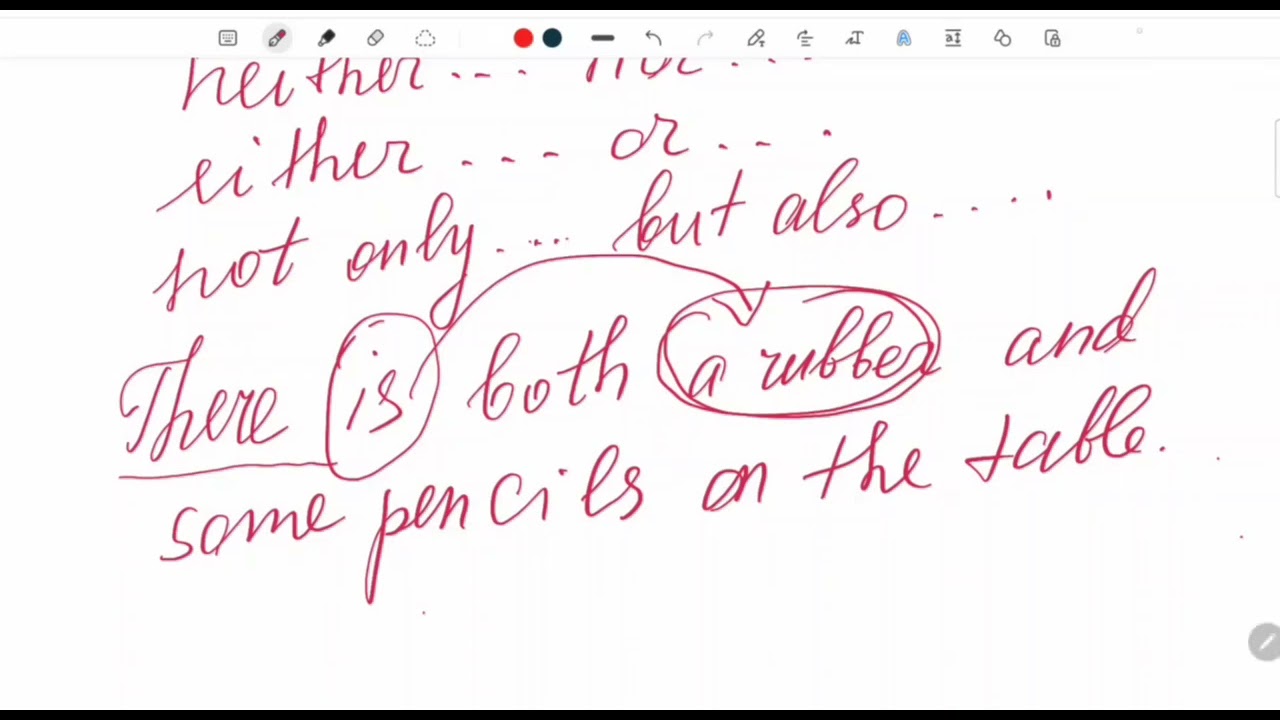 neither.... nor....
either .... or....
not only..... but also.....
There is both a rubber and
some pencils on the table.